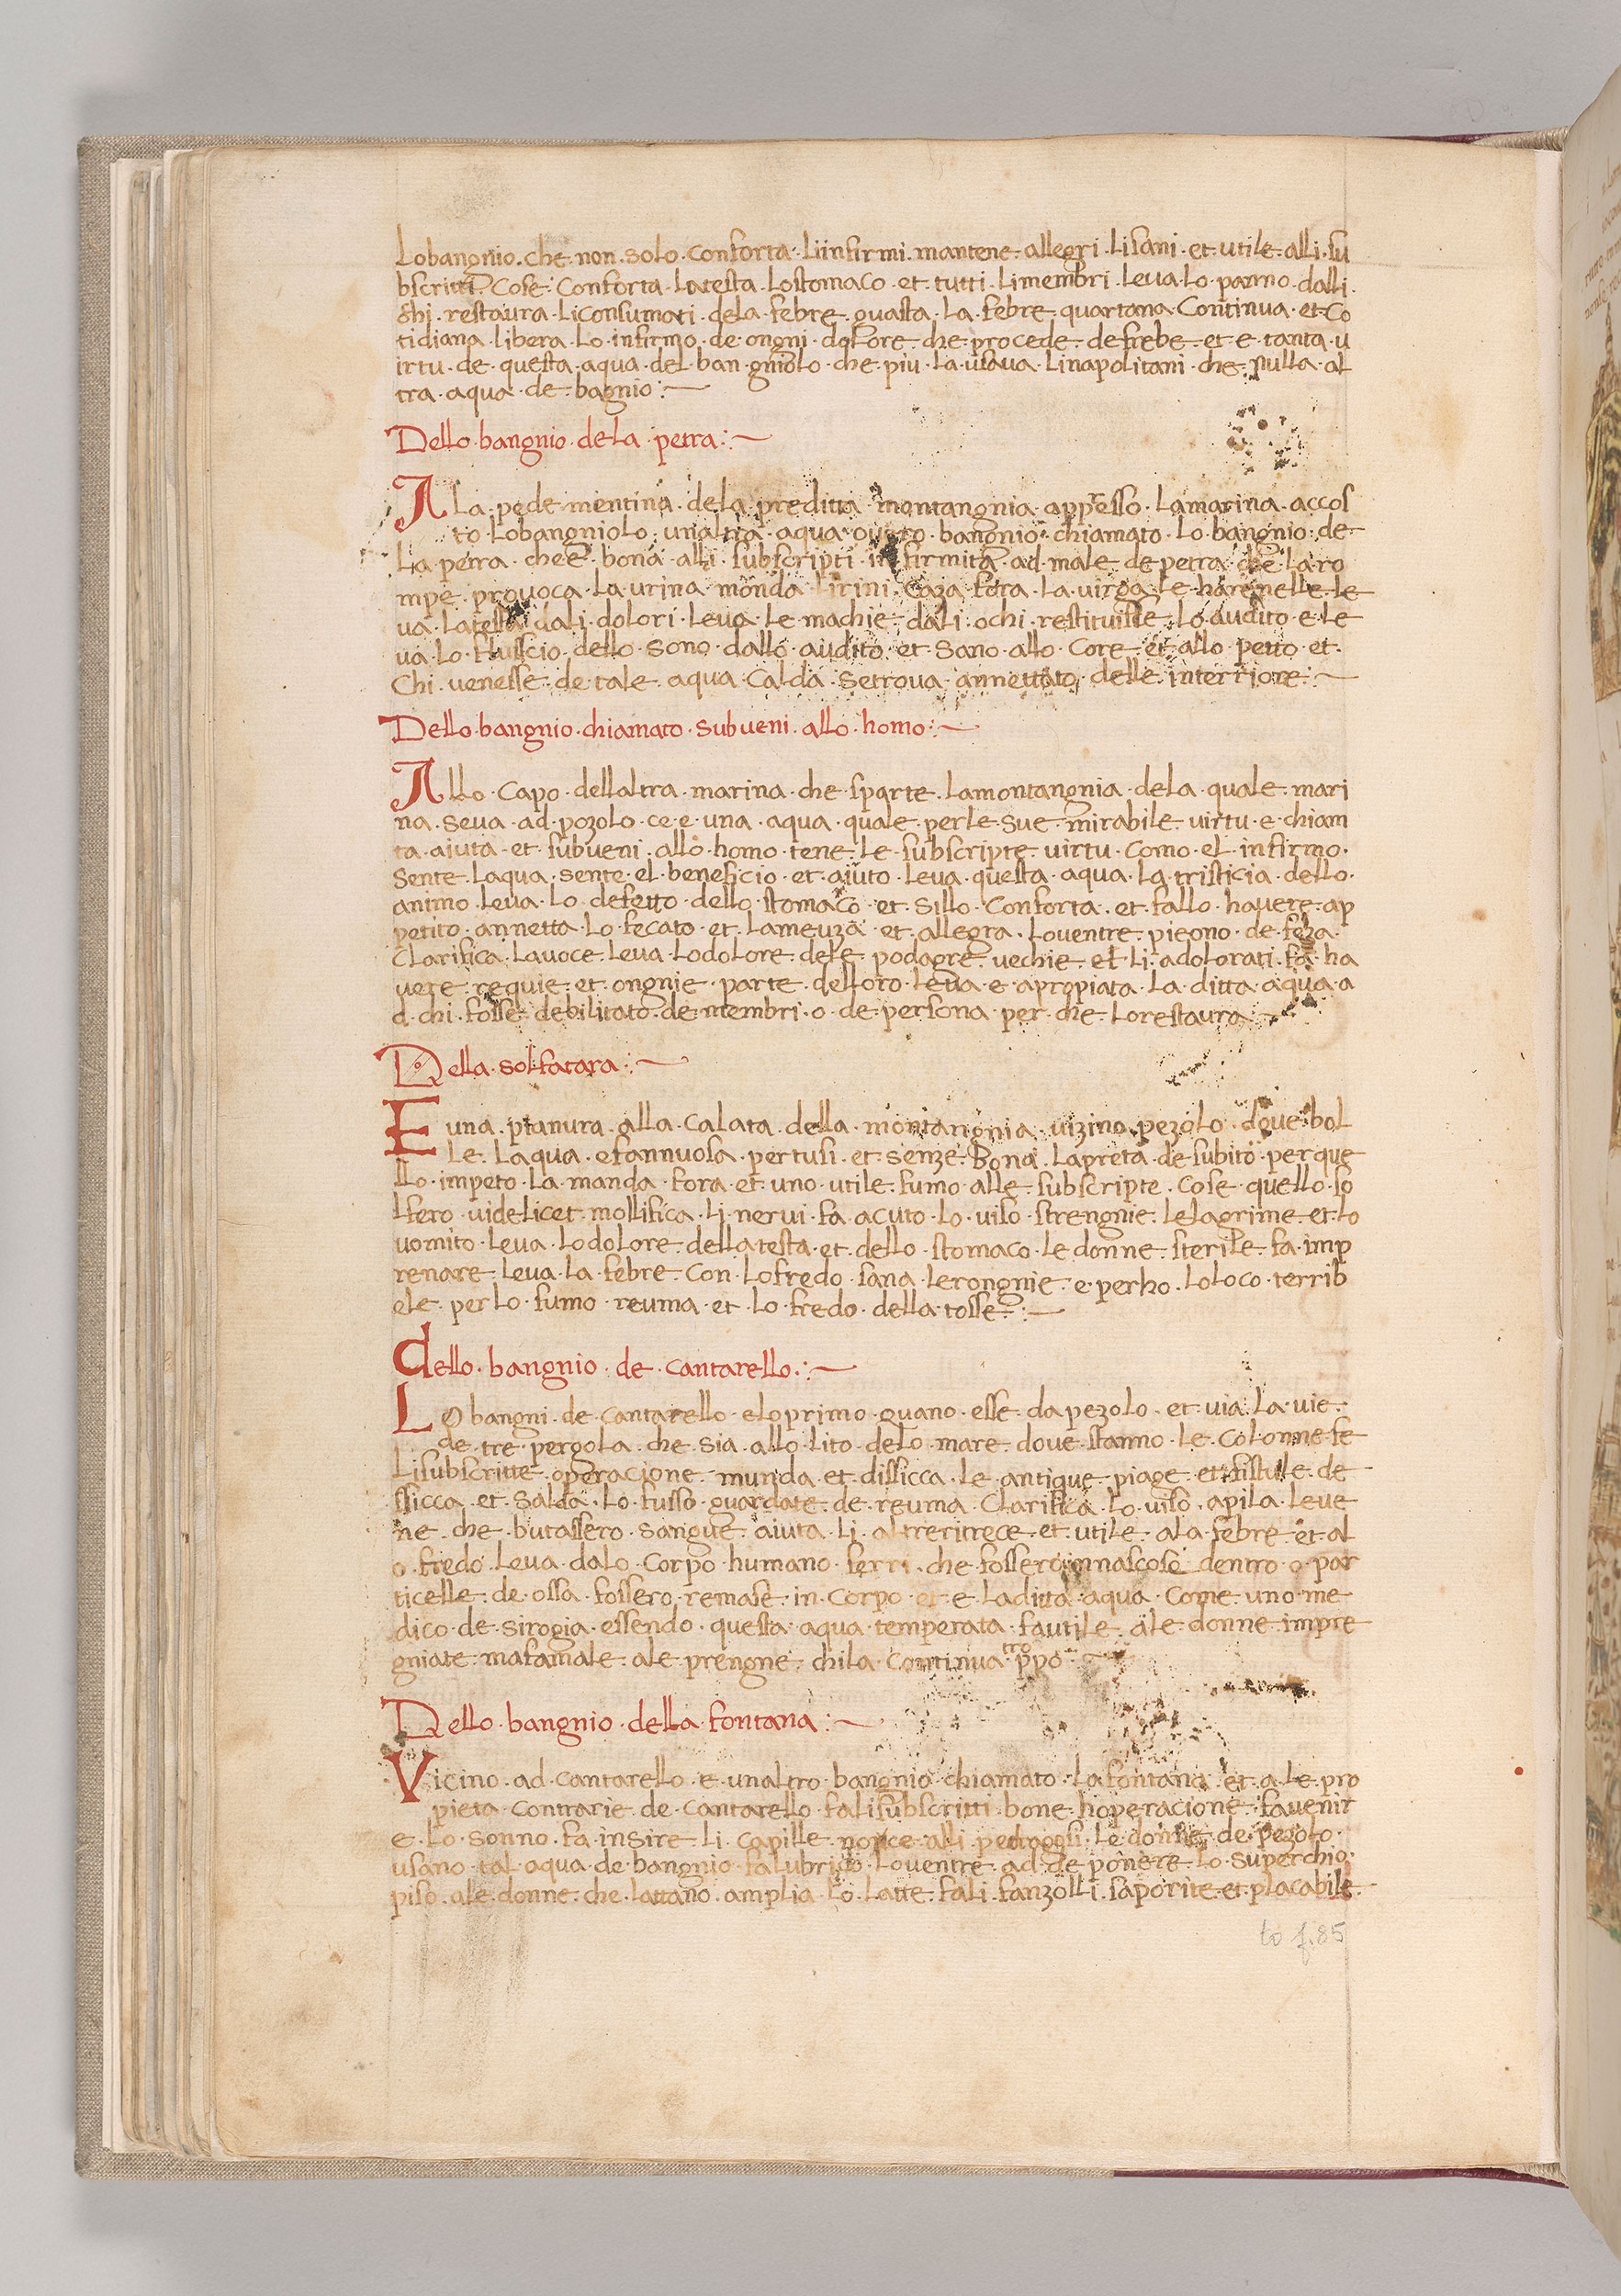 Lobangnio. che. non. solo. Conforta. Liinfirmi. mantene. allegri. Lisani. et. utile. alli. su
bscritti. Cose. Conforta. Latesta. Lostomaco. et. tutti. Limembri. Leua. Lo. panno. dalli.
ochi. restaura. Liconsumati. dela. febre. guasta. La. febre. quartana. Continua. et. Co
tidiana. libera. Lo. infirmo. de. ongni. dolore. che. procede. defrebe. et. e. tanta. u
irtu. de. questa. aqua. del. ban.gniolo. che. piu. La. usaua. Linapolitani. che. nulla. al
tra. aqua. de. bagnio:~
Dello. bangnio. dela. petra:~
A La. pede. mentina. dela. preditta. montangnia. appresso. Lamarina. accos
to. Lobangniolo. unaltra. aqua. bangnio. chiamato. Lo. bangnio. de
La. petra. chee. bona. alli. subscripti. infirmita. ad. male. de. petra. che. La. ro
mpe. prouoca. La. urina. monda. Lirini. Caza. fora. La. uirga. Le. harenelle. Le
ua. Latesta. dali. dolori. Leua. Le. machie. dali. ochi. restituisse. Lo. audito. e. Le
ua. Lo. fluscio. dello. sono. dallo. audito. et. Sano. allo. Core. et. allo. petto. et.
Chi. uenesse. de. tale. aqua. Calda. Setroua. annettato. delle. interriore:~
Dello. bangnio. chiamato. subueni. allo. homo:~
Allo. Capo. dellaltra. marina. che. sparte. Lamontangnia. dela. quale. mari
na. Seua. ad. pozolo. ce. e. una. aqua. quale. perle. Sue. mirabile. uirtu. e. chiam
ta. aiuta. et. subueni. allo. homo. tene. Le. subscripte. uirtu. Como. el. infirmo.
Sente. Laqua. sente. el. beneficio. et. aiuto. Leua. questa. aqua. La. tristicia. dello.
animo. Leua. Lo. defetto. dello. stomaco. et. Sillo. Conforta. et. fallo. hauere. ap
petito. annetta. Lo. fecato. et. Lameuza. et. allegra. Louentre. pieono. de. feza.
Clarifica. Lauoce. Leua. Lodolore. dele. podagre. uechie. et. Li. adolorati. fa. ha
uere. requie. et. ongnie. parte. delloro. Leua. e. apropiata. La. ditta. aqua. a
d. chi. fosse. debilitato. de. membri. o. de. persona. per. che. Lorestaura:~
Della. solfatara:~
E una. pianura. alla. Calata. della. montangnia. uizino. pezolo. doue. bol
Le. Laqua. efannuosa. pertusi. et. senze. Bona. Lapreta. de. subito. perque
llo. impeto. La. manda. fora. et. uno. utile. fumo. alle. subscripte. Cose. quello. so
lfero. uidelicet. mollifica. Li. nerui. fa. acuto. Lo. uiso. strengnie. Lelagrime. et. Lo
uomito. Leua. Lodolore. dellatesta. et. dello. stomaco. Le. donne. sterile. fa. imp
renare. Leua. La. febre. Con. Lofredo. sana. Lerongnie. e. perho. Loloco. terrib
ele. per Lo. fumo. reuma. et. Lo. fredo. della. tosse:~
dello. bangnio. de. Cantarello:~
Lo bangni. de. Cantarello. eloprimo. quano. esse. da pezolo. et. uia. La. uie.
de. tre. pergola. che. Sia. allo. Lito. delo. mare. doue. stanno. Le. Colonne. fe
Lisubscritte. operacione. munda. et. dissicca. Le. antique. piage. et. fistule. de
ssicca. et. Salda. Lo. fusso. guardate. de. reuma. Clarifica. Lo. uiso. apila. Leue
ne. che. butassero. sangue. aiuta. Li. altrerirece. et. utile. ala. febre. et. al
o. fredo. Leua. dalo. Corpo. humano. ferri. che. fossero. innascose. dentro. o. par
ticelle. de. ossa. fossero. remase. in. Corpo. et. e. Laditta. aqua. Come. uno. me
dico. de. Sirogia. essendo. questa. aqua. temperata. fautile. ale. donne. impre
gniate. mafamale. ale. prengne. chila. Continua. troppo:~
Dello. bangnio. della. fontana:~
Vicino. ad. Cantarello. e. unaltro. bangnio. chiamato. La fontana. et. a. Le. pro
pieta. Contrarie. de. Cantarello. falisubscritti. bone. hoperacione. fauenir
e. Lo. Sonno. fa. insire. Li. Capille. noice. alli. pedraggsi. Le. donne. de. pezolo.
usano. tal. aqua. de. bangnio. salubrido. Louentre. ad. de. ponere. Lo. Superchio.
piso. ale. donne. che. Lattano. amplia. Lo. Latte. fali. fanzolli. saporite. et. placabile.
to f. 85